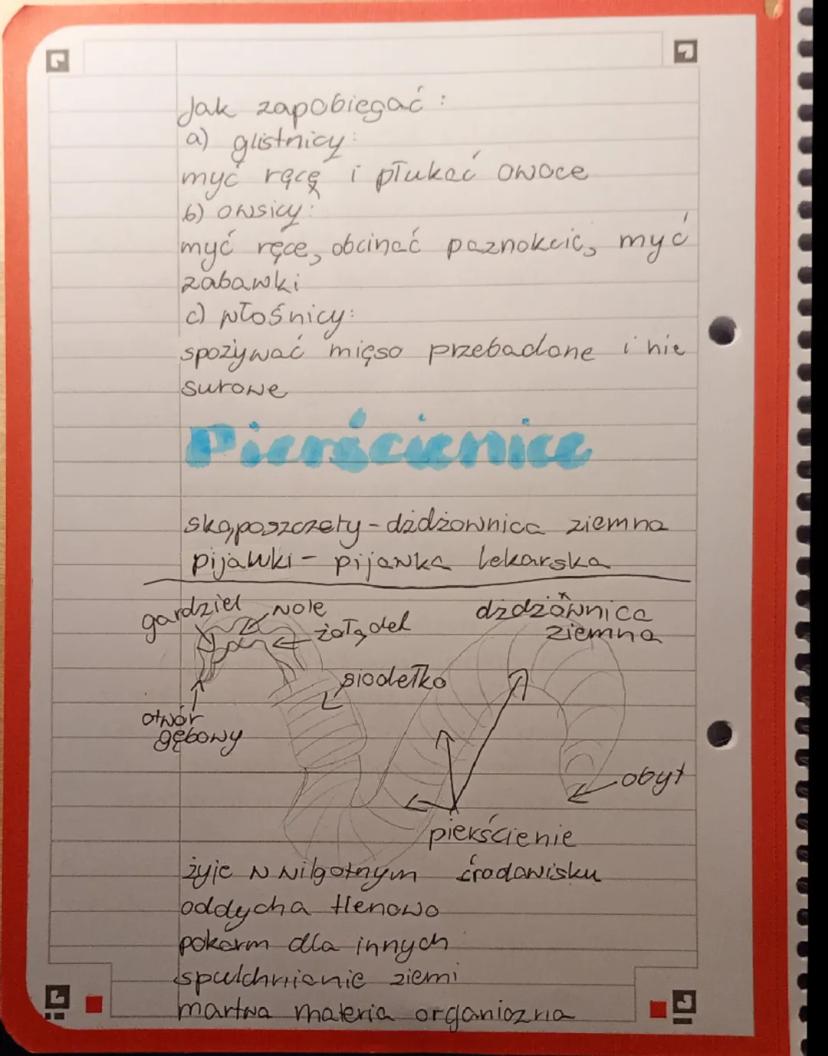 Jak zapobiegać:
a) glistnicy:
myć ręce i płukać owoce
b) owsicy:
myć ręce, obcinać paznokcie, myć
zabawki
c) włośnicy:
spożywać mięso przebadane i nie
surowe
Pierścienice
skąposzczety - dżdżownica ziemna
pijawki - pijawka lekarska
gardziel
wole
żołądek
dżdżownica
ziemna
siodełko
otwór
gębowy
obyt
pierścienie
żyje w wilgotnym środowisku
oddycha tlenowo
pokarm dla innych
spulchnianie ziemi
martwa materia organiczna